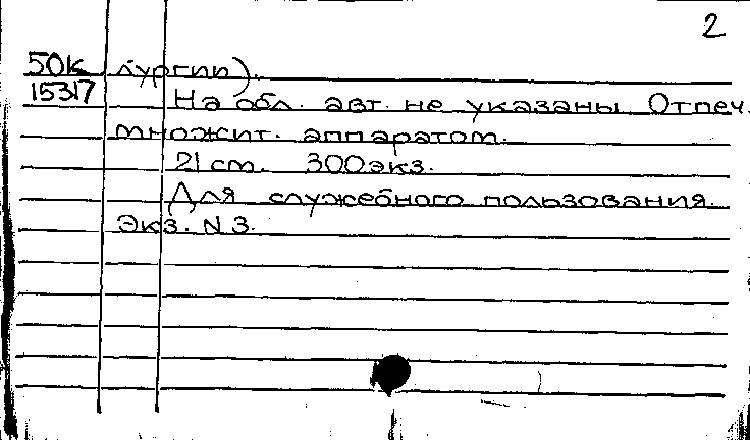 2
50К лургии).
15317 На обл. авт. не указаны Отпеч.
множит. аппаратом.
21 cm. 300 экз.
Для служебного пользования.
Экз. N 3.